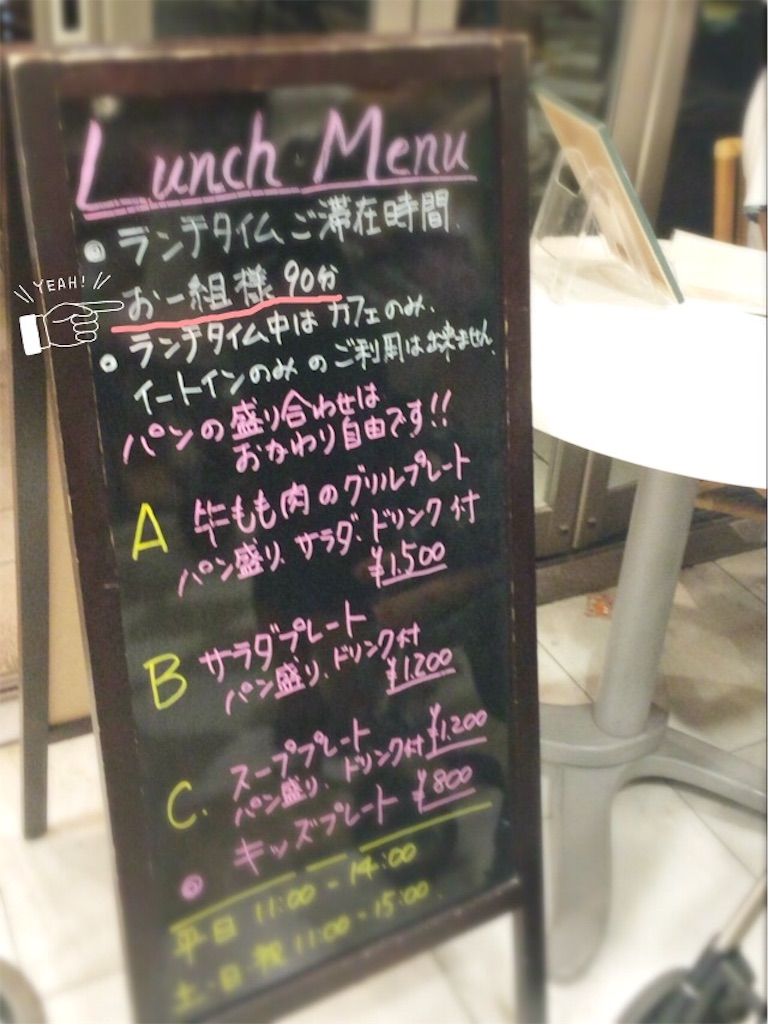 Lunch Menu
ランチタイムご滞在時間
YEAH!
お一組様 90分
ランチタイム中は カフェのみ、
イートインのみ のご利用は出来ません
パンの盛り合わせは
おかわり自由です!!
A 牛もも肉のグリルプレート
パン盛り、サラダ、ドリンク付
¥1,500
B サラダプレート
パン盛り、ドリンク付
¥1,200
C. スーププレート ¥1,200
パン盛り、ドリンク付
キッズプレート ¥800
平日 11:00 - 14:00
土・日・祝 11:00 - 15:00